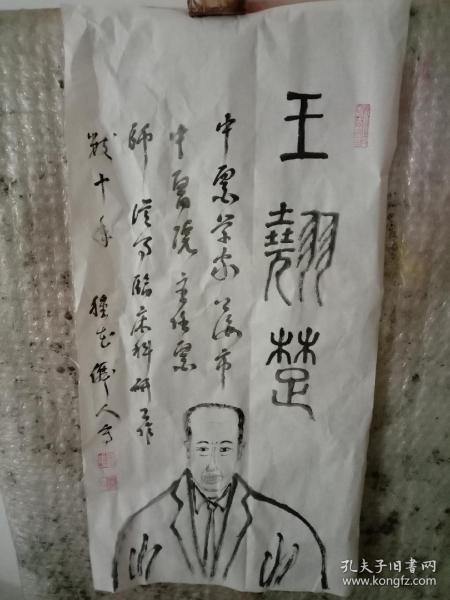 王翹楚
中医学家上海市
中醫院主任医
師從事臨床科研工作
数十年
人寫
孔夫子旧书网
www.kongfz.com